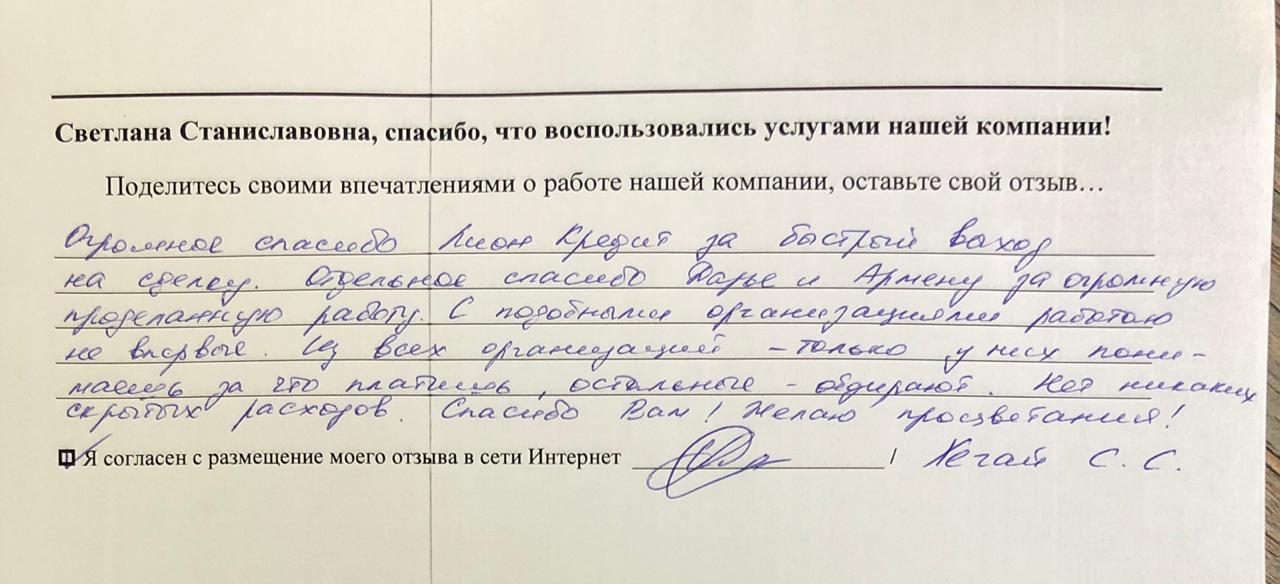 Светлана Станиславовна, спасибо, что воспользовались услугами нашей компании!
Поделитесь своими впечатлениями о работе нашей компании, оставьте свой отзыв…
Огромное спасибо Лион Кредит за быстрый выход
на сделку. Отдельное спасибо Дарье и Армену за огромную
проделанную работу. С подобными организациями работаю
не впервые. Из всех организаций – только у них пони-
маешь за что платишь, остальные – обдирают. Нет никаких
скрытых расходов. Спасибо Вам! Желаю процветания!
Я согласен с размещение моего отзыва в сети Интернет / Хегай С. С.